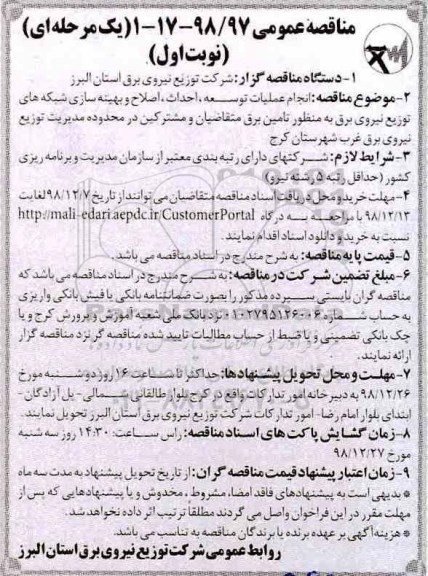 مناقصه عمومی ۹۸/۹۷-۱۷-۱ (یک مرحله ای)
(نوبت اول)
۱-دستگاه مناقصه گزار: شرکت توزیع نیروی برق استان البرز
۲-موضوع مناقصه: انجام عملیات توسعه، احداث، اصلاح و بهینه سازی شبکه های
توزیع نیروی برق به منظور تامین برق متقاضیان و مشترکین در محدوده مدیریت توزیع
نیروی برق غرب شهرستان کرج
۳-شرایط لازم: شرکتهای دارای رتبه بندی معتبر از سازمان مدیریت و برنامه ریزی
کشور (حداقل رتبه ۵ رشته نیرو)
۴-مهلت خرید و محل دریافت اسناد مناقصه متقاضیان می توانند از تاریخ ۹۸/۱۲/۷ لغایت
۹۸/۱۲/۱۳ با مراجعه به درگاه http://mali-edari.aepdc.ir/CustomerPortal
نسبت به خرید و دانلود اسناد اقدام نمایند.
۵-قیمت پایه مناقصه: به شرح مندرج در اسناد مناقصه می باشد.
۶-مبلغ تضمین شرکت در مناقصه: به شرح مندرج در اسناد مناقصه می باشد که
مناقصه گران بایستی سپرده مذکور را بصورت ضمانتنامه بانکی یا فیش بانکی واریزی
به حساب شماره ۰۱۰۲۷۹۵۱۲۶۰۰۶ نزد بانک ملی شعبه آموزش و پرورش کرج و یا
چک بانکی تضمینی و یا ضبط از حساب مطالبات تایید شده مناقصه گر نزد مناقصه گزار
ارائه نمایند.
۷-مهلت و محل تحویل پیشنهادها: حداکثر تا ساعت ۱۶ روز دوشنبه مورخ
۹۸/۱۲/۲۶ به دبیرخانه امور تدارکات واقع در کرج بلوار طالقانی شمالی-پل آزادگان-
ابتدای بلوار امام رضا-امور تدارکات شرکت توزیع نیروی برق استان البرز تحویل نمایند.
۸-زمان گشایش پاکت های اسناد مناقصه: راس ساعت: ۱۴:۳۰ روز سه شنبه
مورخ ۹۸/۱۲/۲۷
۹-زمان اعتبار پیشنهاد قیمت مناقصه گران: از تاریخ تحویل پیشنهاد به مدت سه ماه
* بدیهی است به پیشنهادهای فاقد امضا، مشروط، مخدوش و یا پیشنهادهایی که پس از
مهلت مقرر در این فراخوان واصل می گردند مطلقا ترتیب اثر داده نخواهد شد.
* هزینه آگهی بر عهده برنده یا برندگان مناقصه به تناسب می باشد.
روابط عمومی شرکت توزیع نیروی برق استان البرز